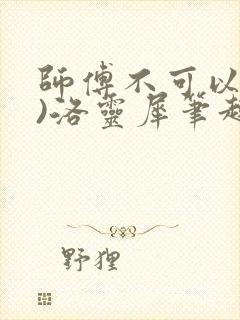 師傅不可以
)洛靈犀筆趣
野狸